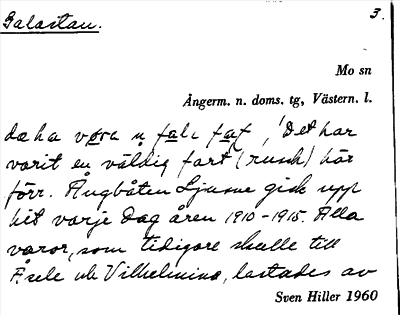 Galastan.
3.
Mo sn
Ångerm. n. doms. tg, Västern. l.
da ha vǫra n fali fat, 'Det har
varit en väldig fart (rusch) här
förr. Ångbåten Ljusne gick upp
hit varje dag åren 1910-1915. Alla
varor, som tidigare skulle till
Åsele och Vilhelmina, lastades av
Sven Hiller 1960